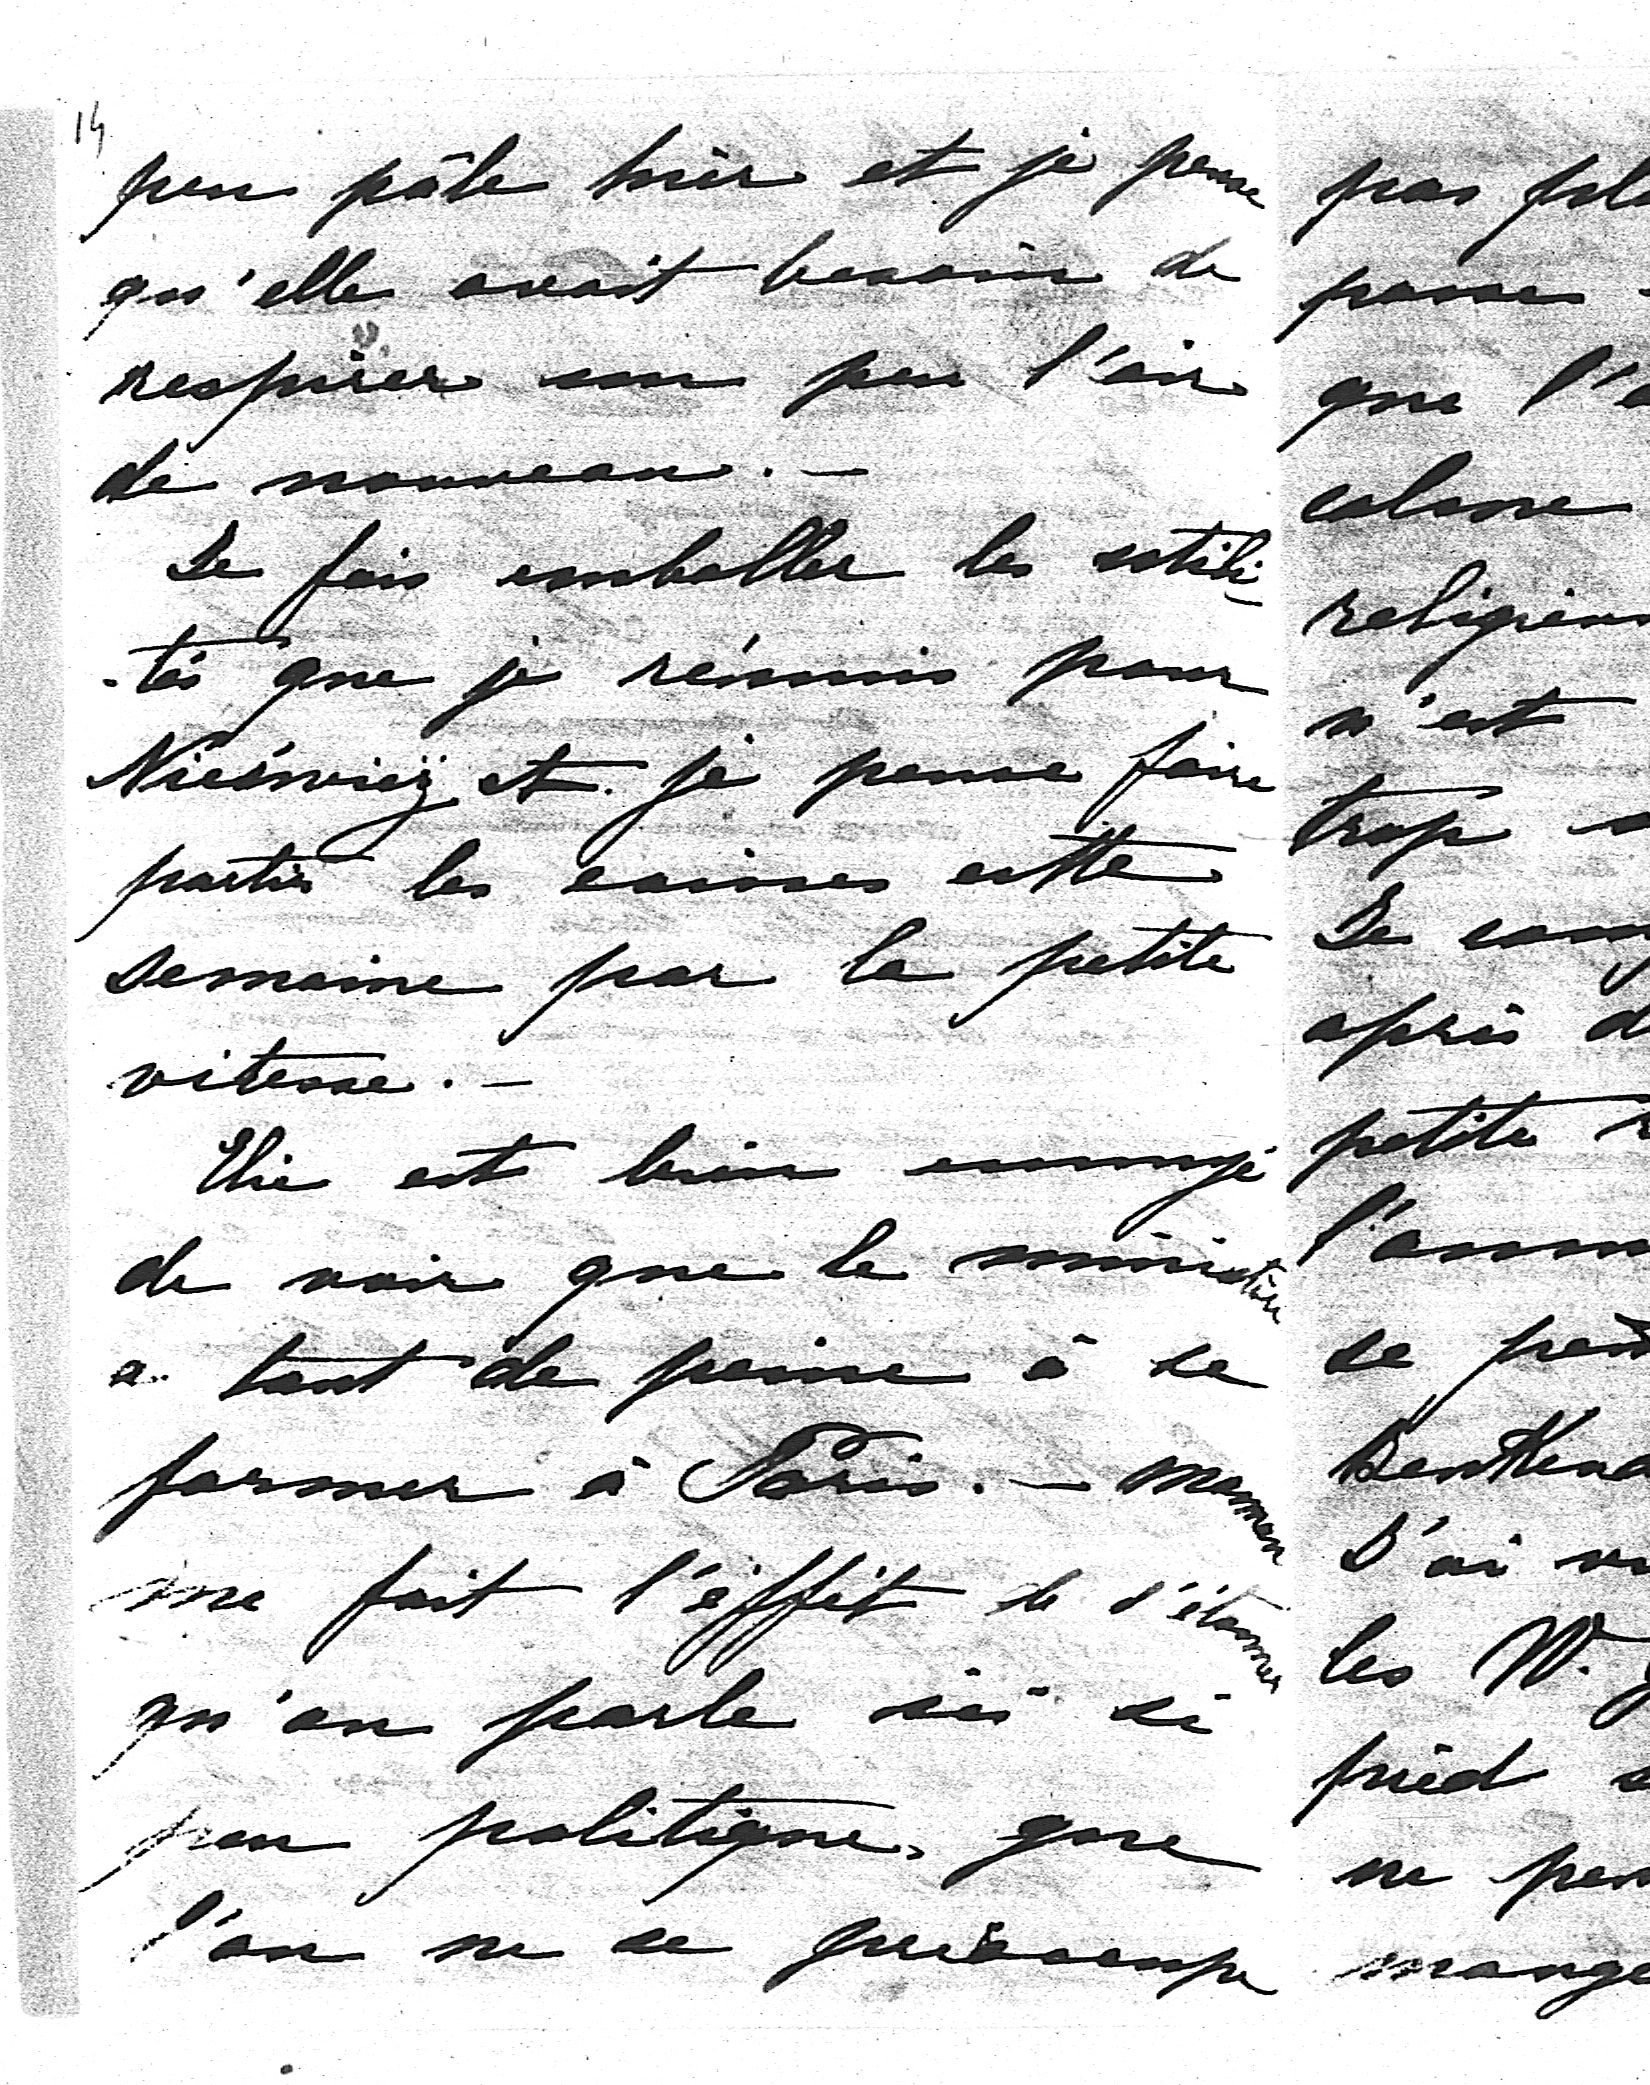 14
peu pâle hier et je pense
qu'elle avait besoin de
respirer un peu l'air
de nouveau. -
Je fais emballer les utili-
-tés que je réunis pour
Nieśwież et je pense faire
partir les caisses cette
semaine par la petite
vitesse. -
Elie est bien ennuyé
de voir que le ministère
a tant de peine à se
former à Paris. - maman
me fait l'éffèt de s'étonner
qu'on parle ici si
peu politique, que
l'on ne se préoccupe
pas
passer
que l'
calme
religieu
n'est
trop
Je
après d
petite
l'ann
se
J'ai
les W.
pied
ne
mange